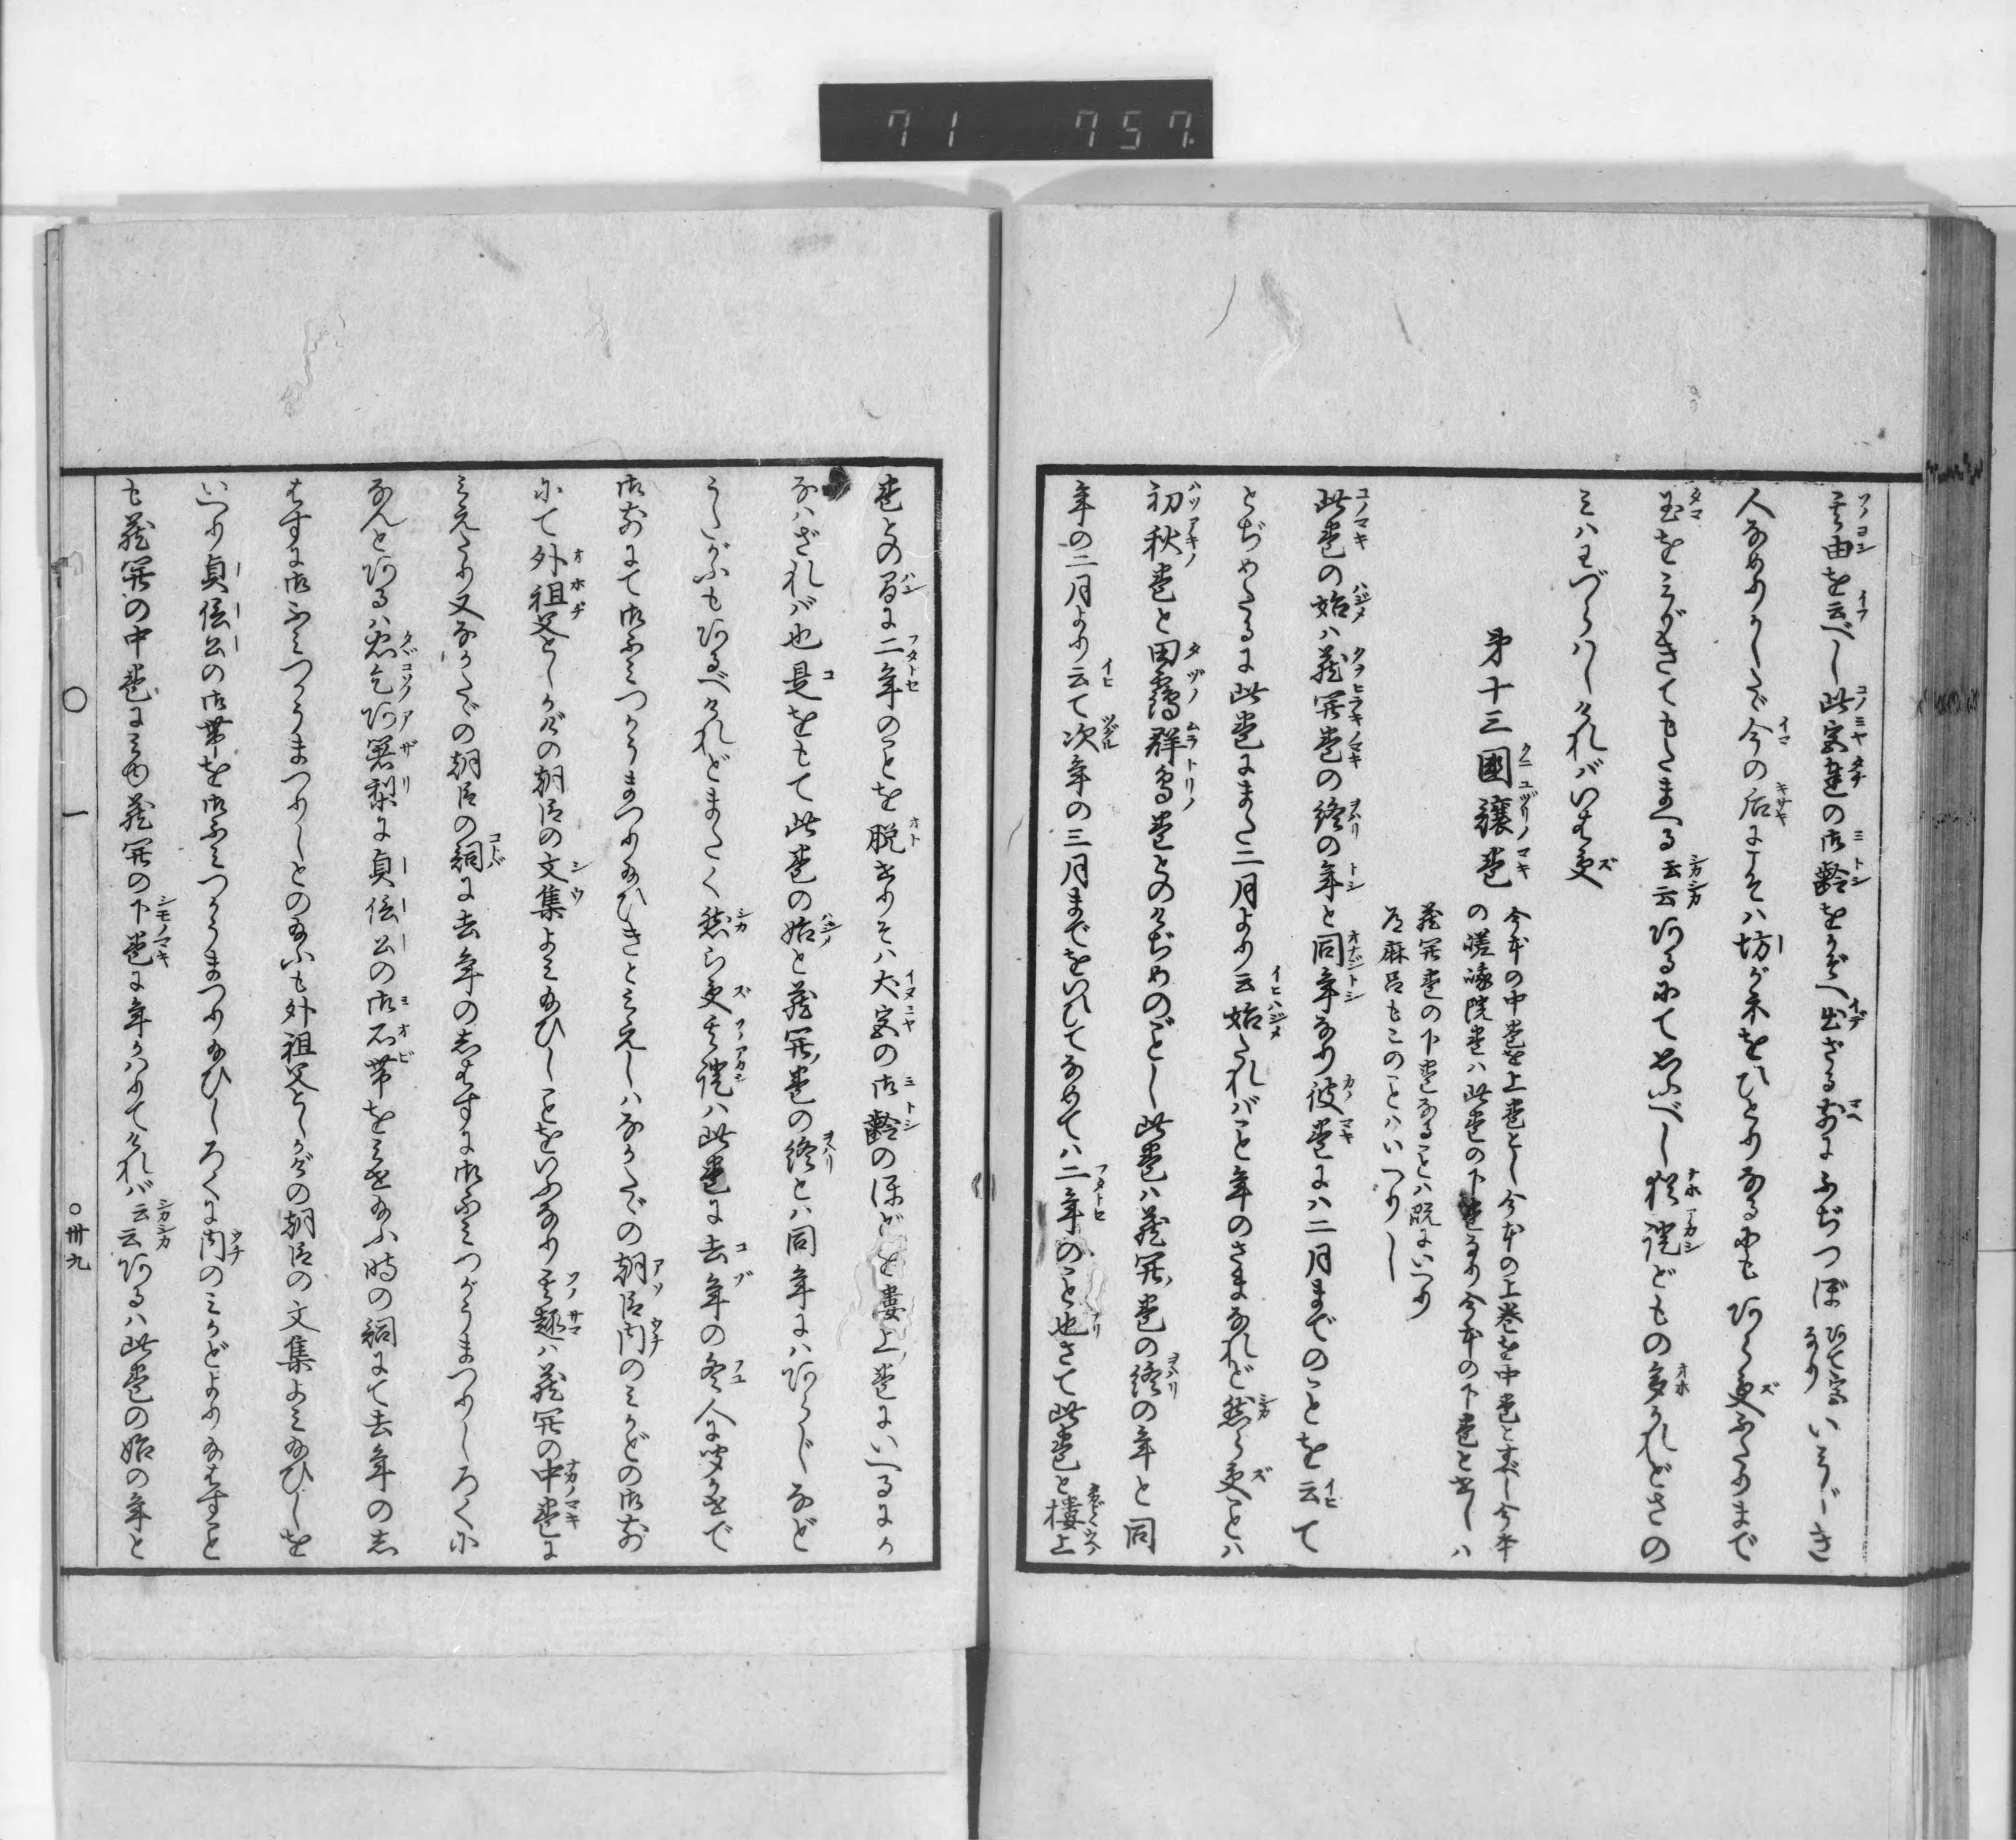 71 757.
其由を云べし此宮達の御齢をかぞへ出ざる前にふぢつぼ あて宮なり いみじき
人なめりかしたゞ今の后にこそハ坊がねをひとりなるにもあら受ふたりまで
玉をみがきてもたまへる云云あるにて思ふべし猶證どもの多かれどさの
ミハわづらハしけれバいは受
第十三國讓巻
今本の中巻を上巻とし今本の上巻を中巻とすべし今本
の嵯峨院巻ハ此巻の下巻なり今本の下巻とせしハ
蔵開巻の下巻なることハ既にいへり
道麻呂もこのことハいへりし
此巻の始ハ蔵開巻の終の年と同年なり彼巻にハ二月までのことを云て
とぢめたるに此巻にまた二月より云始たれバこと年のさまなれど然ら受ことハ
初秋巻と田鶴群鳥巻とのけぢめのごとし此巻ハ蔵開巻の終の年と同
年の二月より云て次年の三月までをいひてなめてハ二年のこと也さて此巻と樓上
巻との間に二年のことを脱せりそハ犬宮の御齢のほどを婁上巻にいへるにか
なハざれバ也是をもて此巻の始と蔵開巻の終とハ同年にハあらじなど
うたがふもあるべけれどまたく然ら受其證ハ此巻に去年の冬人に聞せで
御前にて御ふミつかうまつり給ひきとミえしハなかたゞの朝臣内のミかどの御前
にて外祖父としかげの朝臣の文集よミ給ひしことをいふなり其趣ハ蔵開の中巻に
ミえたり又なかたゞの朝臣の詞に去年のしはすに御ふミつかうまつりしろくに
なんとあるハ忠こそ阿闍梨に貞信公の御石帯をミせ給ふ時の詞にて去年のし
はすに御ふミつかうまつりしとのたまふも外祖父としかげの朝臣の文集よミ給ひしを
いへり貞信公の御帯を御ふミつかうまつり給ひしろくに内のミかどより給はすこと
も蔵開の中巻にミゆ蔵開の下巻に年かハりてけれバ云云あるハ此巻の始の年と
〇 一 〇卅九